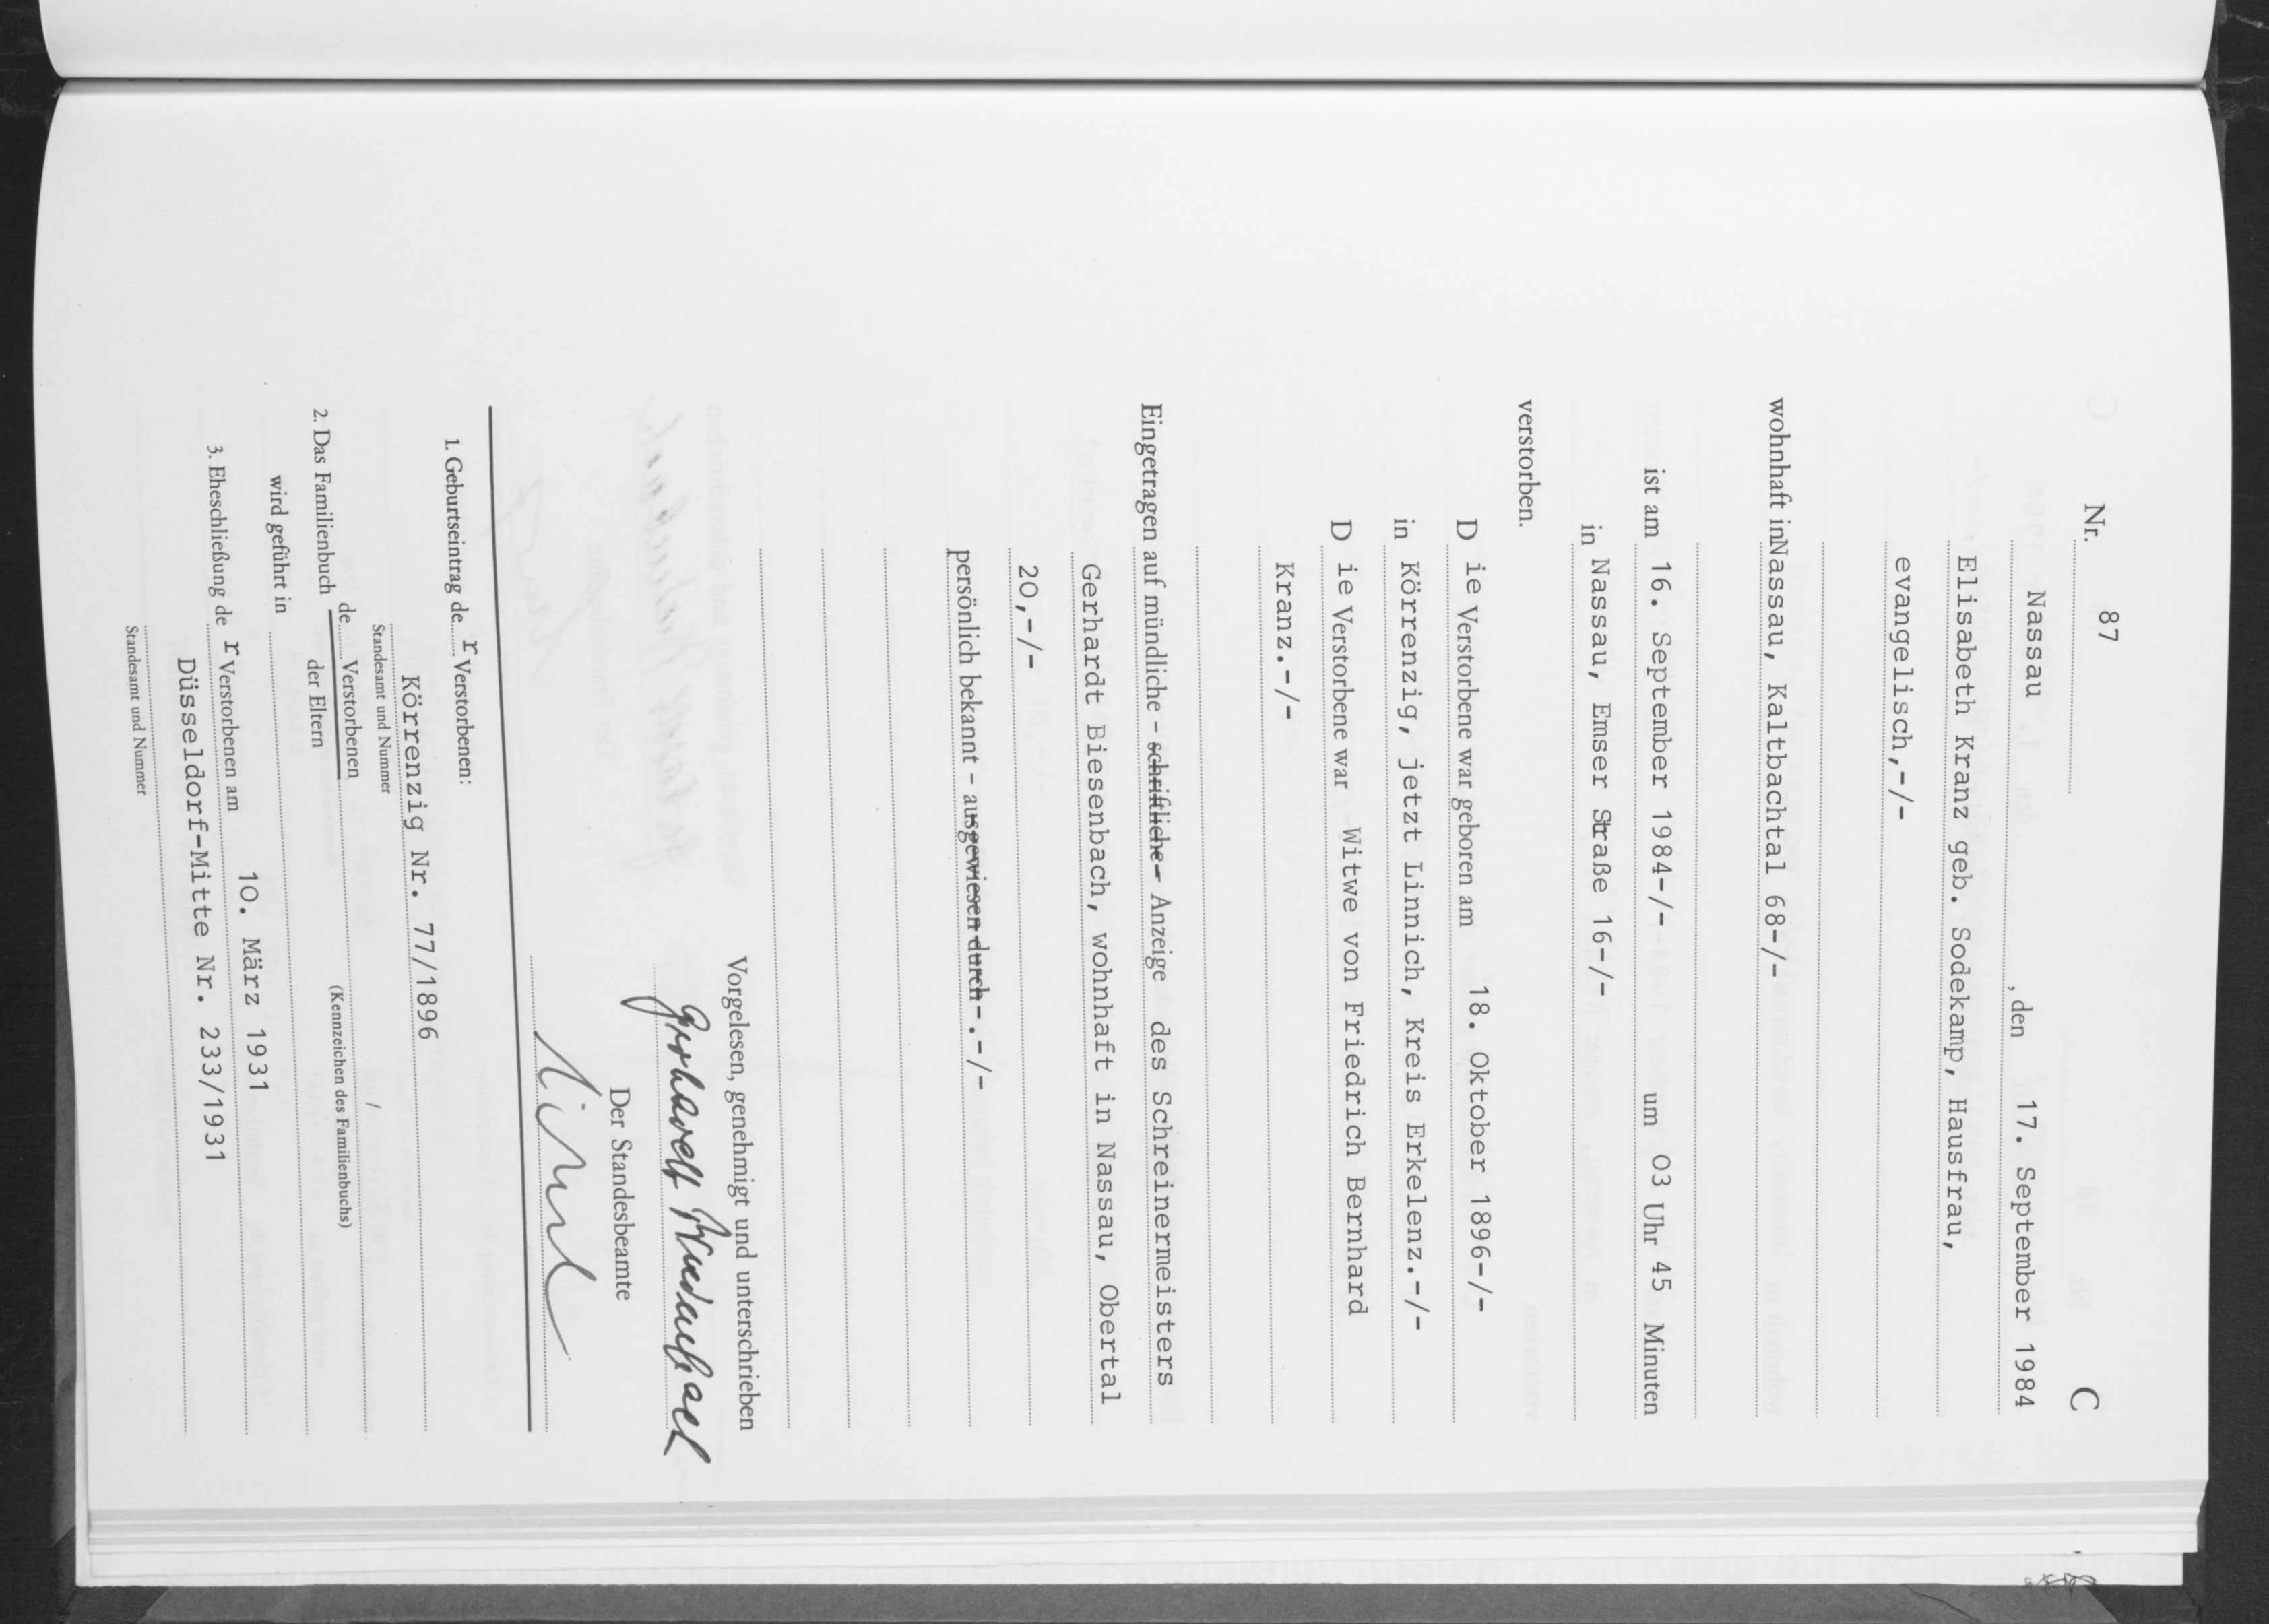 Nr. 87 C
Nassau, den 17. September 1984
Elisabeth Kranz geb. Sodekamp, Hausfrau,
evangelisch,-/-
wohnhaft in Nassau, Kaltbachtal 68-/-
ist am 16. September 1984-/- um 03 Uhr 45 Minuten
in Nassau, Emser Straße 16-/-
verstorben.
D ie Verstorbene war geboren am 18. Oktober 1896-/-
in Körrenzig, jetzt Linnich, Kreis Erkelenz.-/-
D ie Verstorbene war Witwe von Friedrich Bernhard
Kranz.-/-
Eingetragen auf mündliche - schriftliche - Anzeige des Schreinermeisters
Gerhardt Biesenbach, wohnhaft in Nassau, Obertal
20,-/-
persönlich bekannt - ausgewiesen durch -.-/-
Vorgelesen, genehmigt und unterschrieben
Gerhardt Biesenbach
Der Standesbeamte
1. Geburtseintrag de r Verstorbenen:
Körrenzig Nr. 77/1896
Standesamt und Nummer
2. Das Familienbuch de Verstorbenen /
der Eltern (Kennzeichen des Familienbuchs)
wird geführt in
3. Eheschließung de r Verstorbenen am 10. März 1931
Düsseldorf-Mitte Nr. 233/1931
Standesamt und Nummer